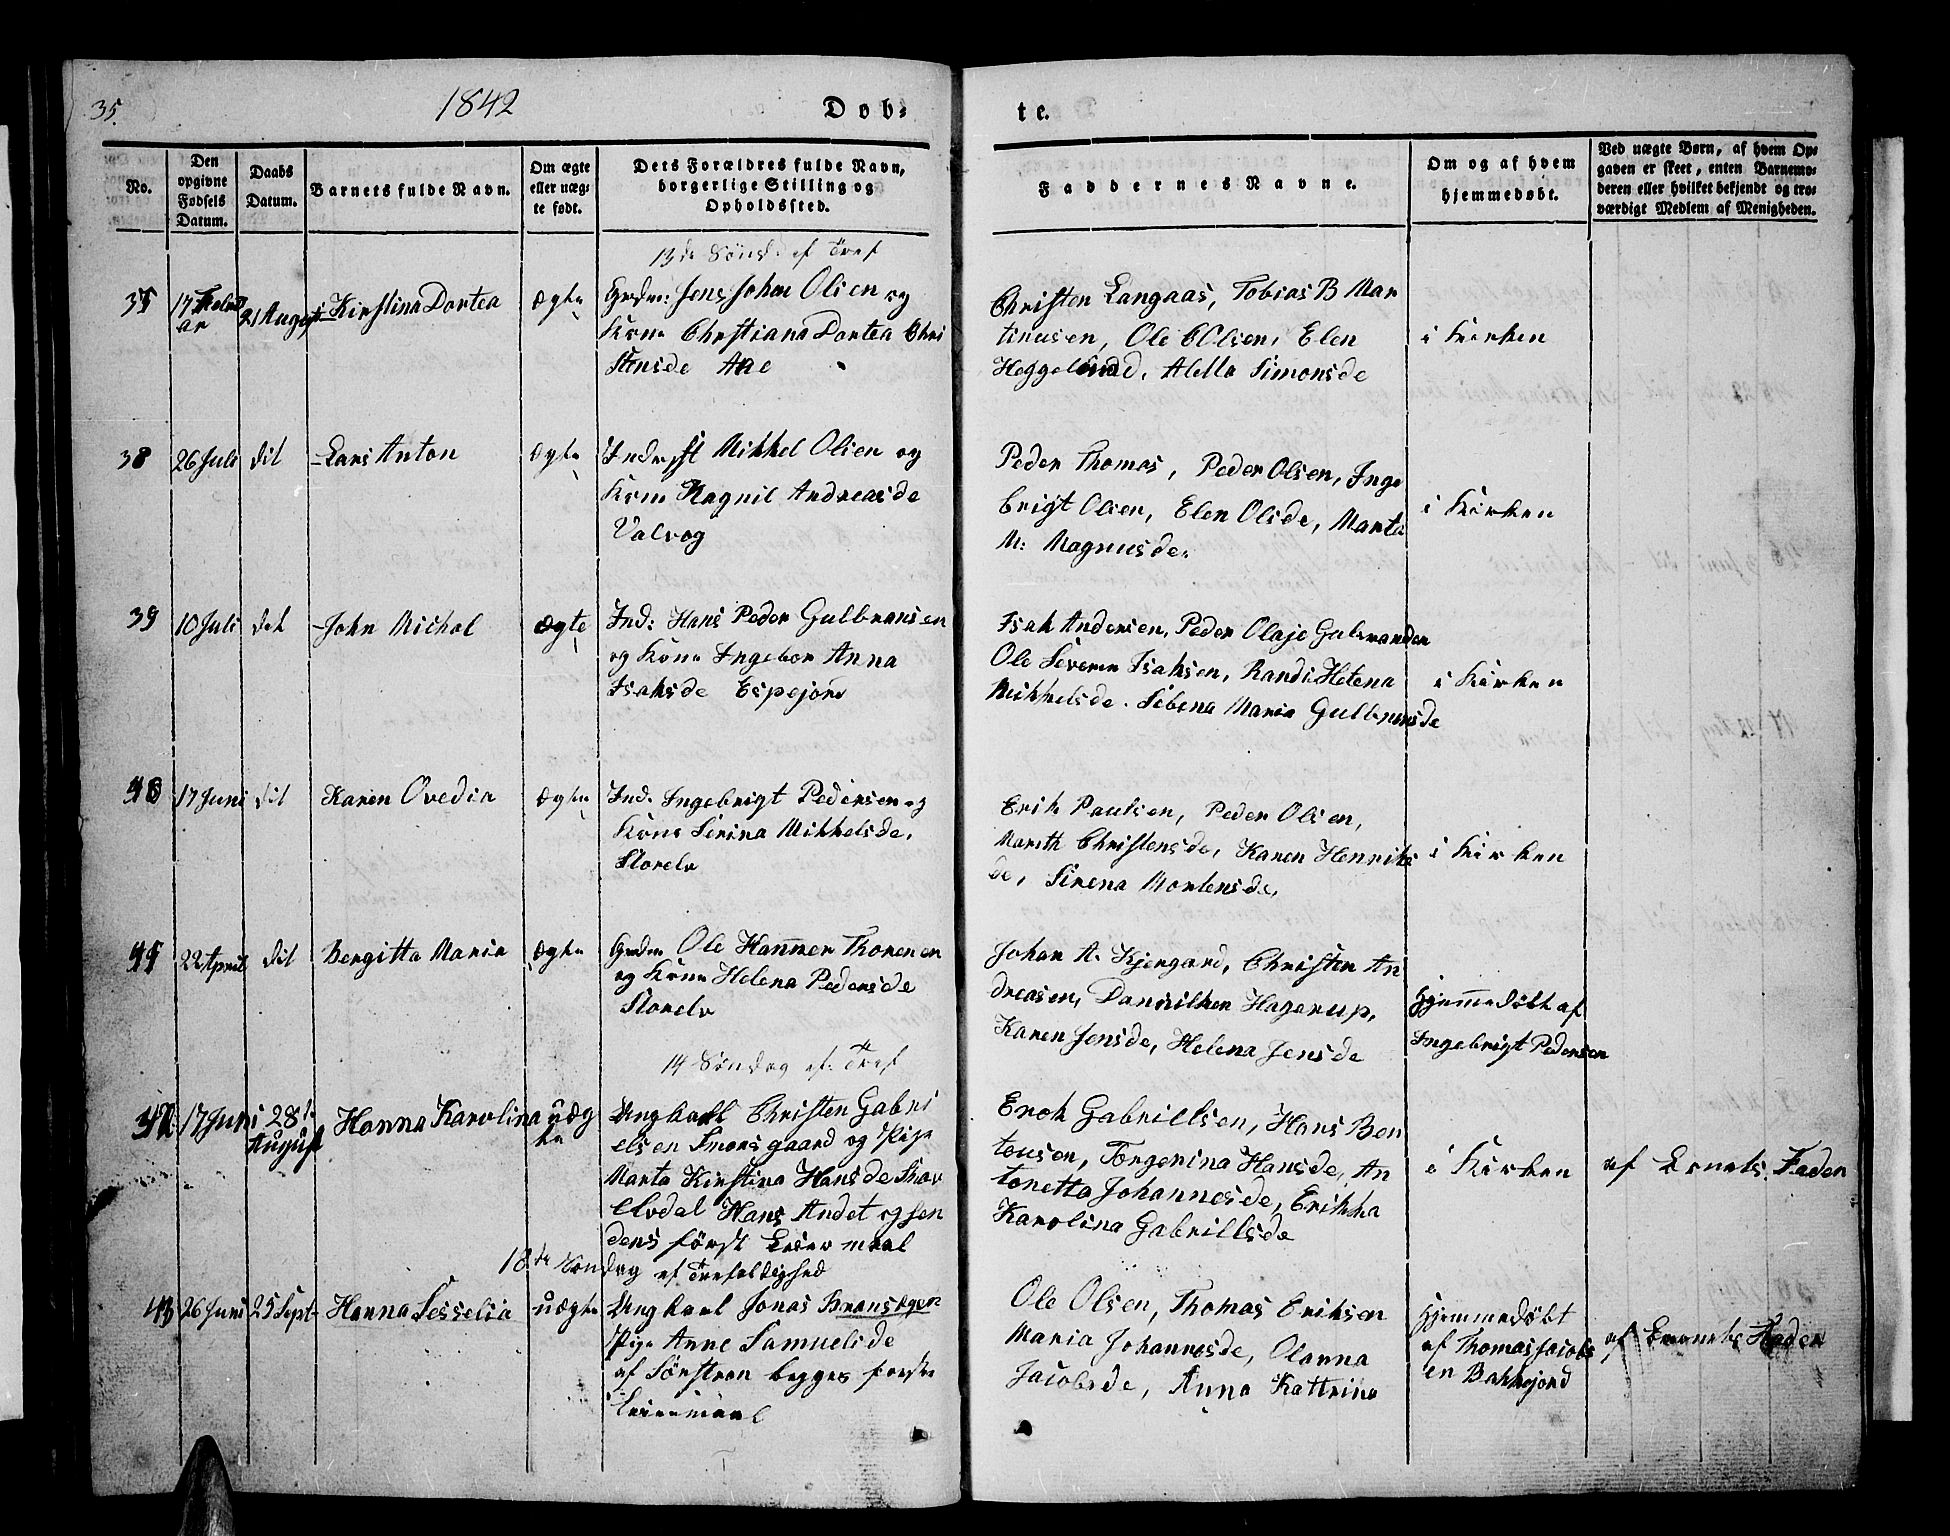 35.
1842
Dob-
te.
No.
Den
opgivne
Fødsels
Datum.
Daabs
Datum.
Barnets fulde Navn.
Om ægte
eller uæg-
te født.
Dets Forældres fulde Navn,
borgerlige Stilling og
Opholdssted.
Faddernes Navne.
Om og af hvem
hjemmedøbt.
Ved uægte Børn, af hvem Op-
gaven er skeet, enten Barnemo-
deren eller hvilket bekjendt og tro-
værdigt Medlem af Menigheden.
13de Sønd. ef Tref
21 August
Kirstina Dortea
Ægte
Jens Johan Olsen og
Kone Christiana Dortea Chri
stensde
Christen Langaas, Tobias B Mar
tinusen, Ole C Olsen, Elen
Heggelund, Aletta Simonsde
i Kirken
38
26 Juli
dit
Lars Anton
Ægte
Mikkel Olsen og
Kone Ragnil Andreasde
Valvog
Peder Thomas, Peder Olsen, Inge
brigt Olsen, Elen Olsde, Marta
M: Magnusde.
i Kirken
39
10 Juli
dit
John Michal
Ægte
Ind: Hans Peder Gulbransen
og Kone Ingebor Anna
Isaksde Espejord
Isak Andersen, Peder Olaje
Ole Severin Isaksen, Randi Helena
Mikkelsde.
i Kirken
40
17 Juni
dit
Karen Ovedia
Ægte
Ind. Ingebrigt Pedersen og
Kone Sirina Mikkelsde,
Storelv
Erik Paulsen, Peder Olsen,
Marith Christensde, Karen Henriks
de, Sirena Mortensde,
i Kirken
41
22 April
dit
Bergitta Maria
Ægte
Ole Hammer
og Kone Helena Pedersde
Storelv
Johan A. Kjergard, Christen An
dreasen, Hagerup,
Karen Jensde, Helena Jensde
Hjemmedøbt af
Ingebrigt Pedersen
14 Søndag ef: Tref
42
17 Juni
28
August
Hanna Karolina
uæg
te
Ungkarl Christen Gabri
elsen og Pige
Marta Kirstina Hansde
Hans Andet og hen
dens først Leiermaal
Enok Gabrielsen, Hans Ben
tousen, Torgerina Hansde, An
tonetta Johannesde, Erikka
Karolina Gabrielsde
i Kirken
af Barnets Fader
18de Søndag ef Trefoldighed
43
26 Juni
25 Sept
Hanna Sesselia
uægte
Ungkarl Jonas
Pige Anne Samuelsde
af begges første
Leiermaal
Ole Olsen, Thomas Eriksen
Maria Johannesde, Olanna
Jacobsde, Anna Kattrina
Hjemmedøbt
af Thomas Jacobs
en Bakkejord
af Barnets Fader